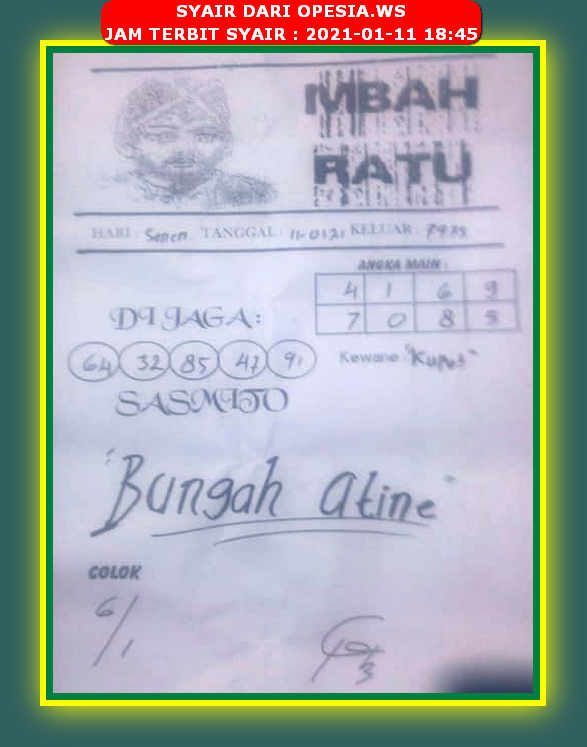 SYAIR DARI OPESIA.WS
JAM TERBIT SYAIR : 2021-01-11 18:45
MBAH
RATU
HARI : Senen TANGGAL : 11-01.21 KELUAR :
ANGKA MAIN :
4 1 6 9
7 0 8
DI JAGA :
64 32 85 47 91
Kewane "
SASMITO
"Bungah atine"
COLOK
6/1